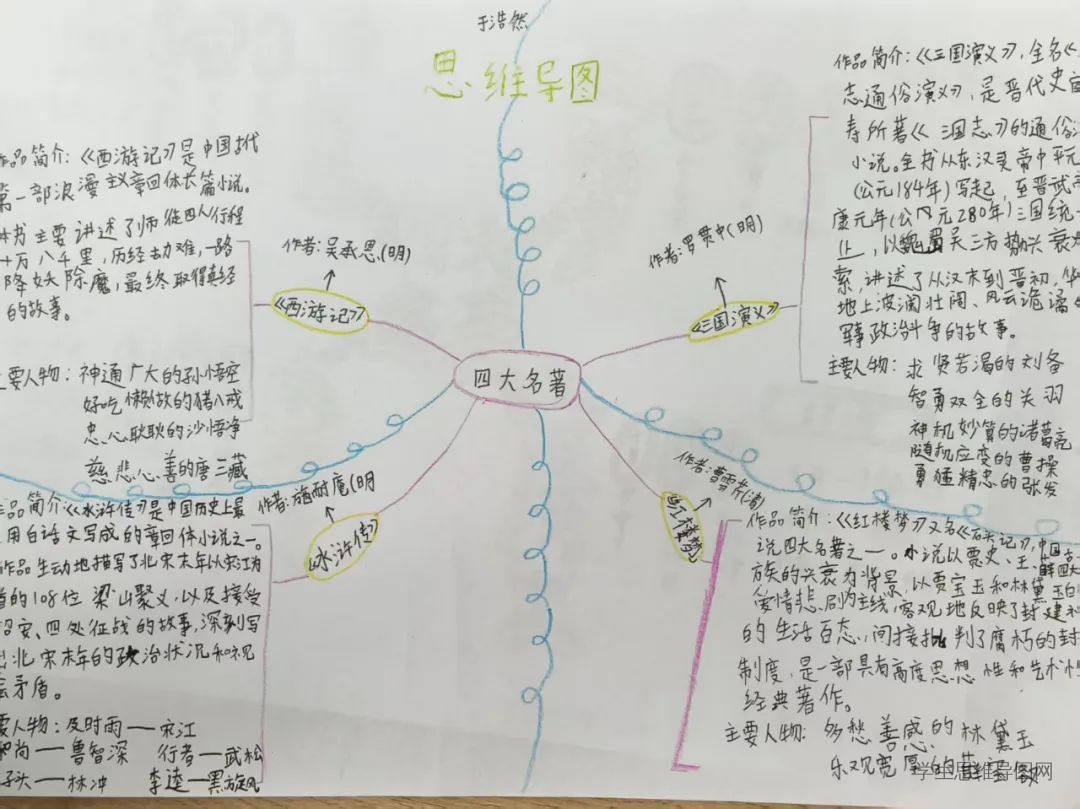 于浩然
思维导图
四大名著
《西游记》
作者:吴承恩(明)
作品简介:《西游记》是中国古代
第一部浪漫主义章回体长篇小说。
书主要讲述了师徒四人行程
十万八千里,历经劫难,一路
降妖除魔,最终取得真经
的故事。
主要人物:神通广大的孙悟空
好吃懒做的猪八戒
忠心耿耿的沙悟净
慈悲心善的唐三藏
《三国演义》
作者:罗贯中(明)
作品简介:《三国演义》,全名《
志通俗演义》,是晋代史
寿所著《三国志》的通俗
小说。全书从东汉灵帝中平元
(公元184年)写起,至晋武
康元年(公元280年)三国统一
止,以魏蜀吴三方势兴衰为
索,讲述了从汉末到晋初,华
地上波澜壮阔、风云诡谲
军事政治斗争的故事。
主要人物:求贤若渴的刘备
智勇双全的关羽
神机妙算的诸葛亮
随机应变的曹操
勇猛精忠的张发
《水浒传》
作者:施耐庵(明
作品简介:《水浒传》是中国历史上最
用白话文写成的章回体小说之一。
作品生动地描写了北宋末年以宋江为
首的108位梁山聚义,以及接受
招安、四处征战的故事,深刻写
出北宋末年的政治状况和视
会矛盾。
要人物:及时雨——宋江
和尚——鲁智深 行者—武松
子头——林冲 李逵—黑旋风
《红楼梦》
作者:曹雪芹(清)
作品简介:《红楼梦》又名《石头记》,中国古
说四大名著之一。小说以贾史、王、薛四大
族的兴衰为背景,以贾宝玉和林黛玉的
爱情悲剧为主线,客观地反映了封建社
的生活百态,间接批判了腐朽的封
制度,是一部具有高度思想性和艺术性
经典著作。
主要人物:多愁善感的林黛玉
乐观宽厚的
学生思维导图网